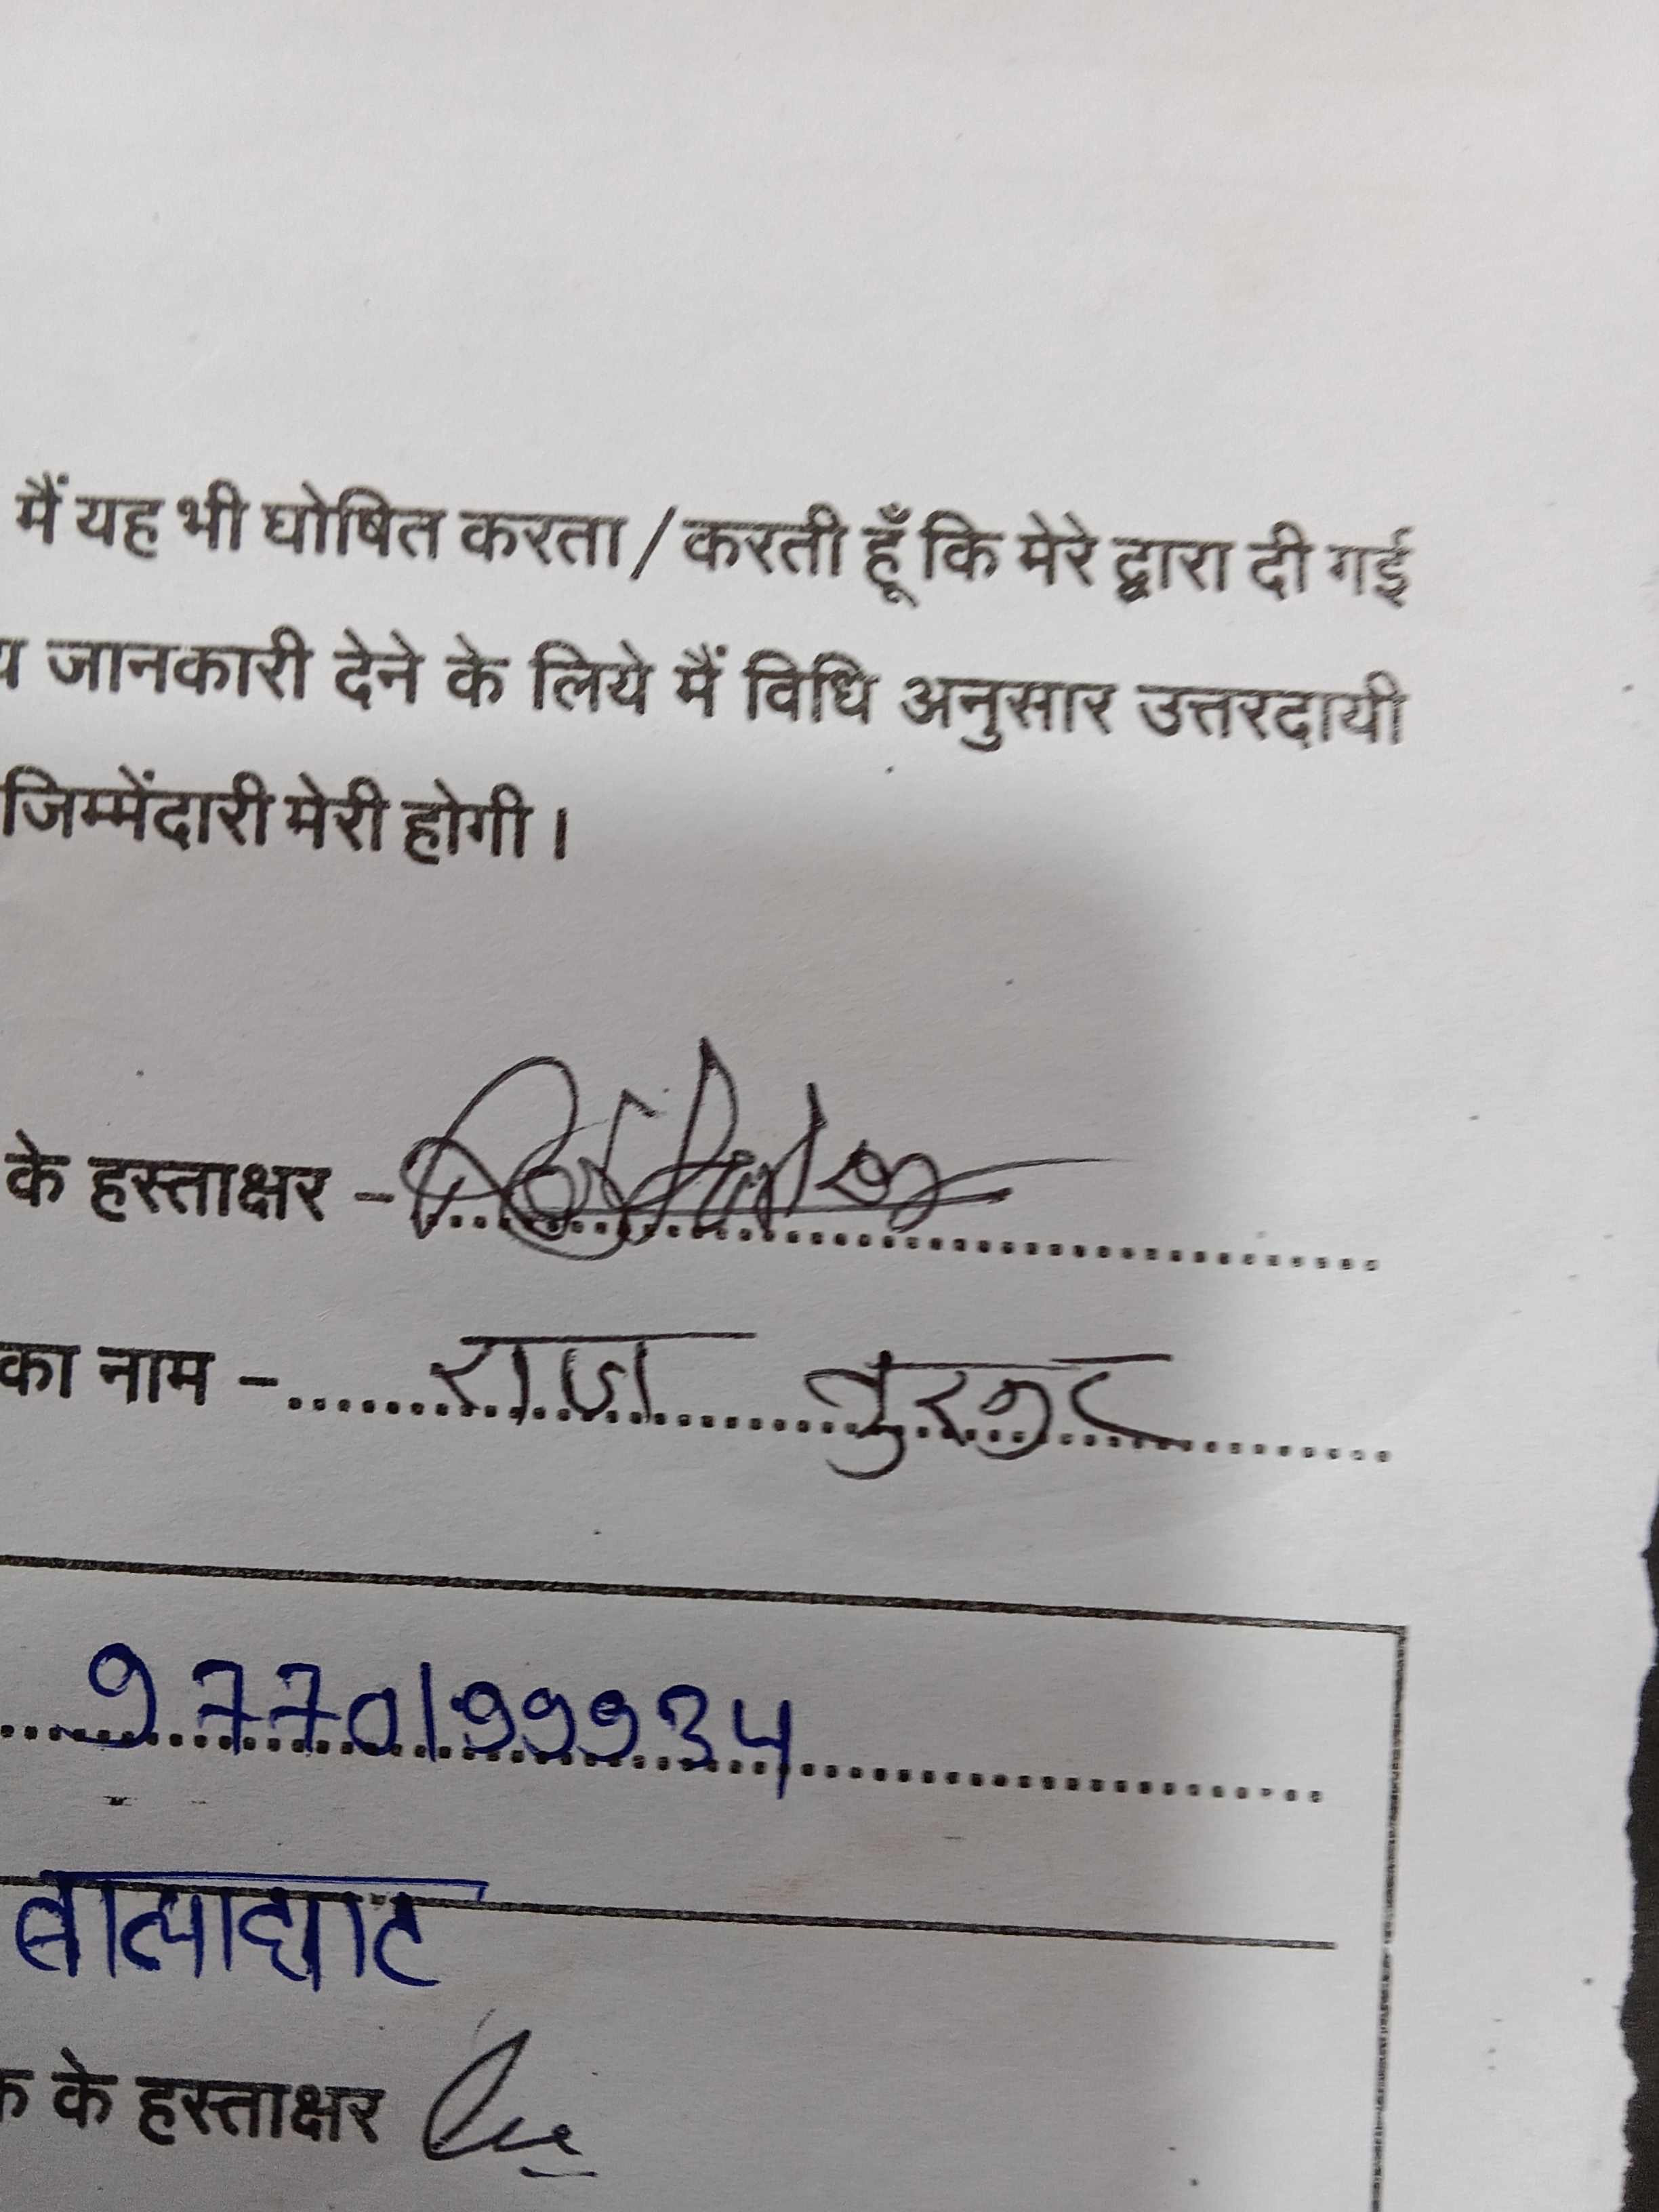 मैं यह भी घोषित करता / करती हूँ कि मेरे द्वारा दी गई
य जानकारी देने के लिये मैं विधि अनुसार उत्तरदायी
जिम्मेंदारी मेरी होगी।
के हस्ताक्षर -
का नाम - राज तुरकर
9770199934
बालाघाट
क के हस्ताक्षर